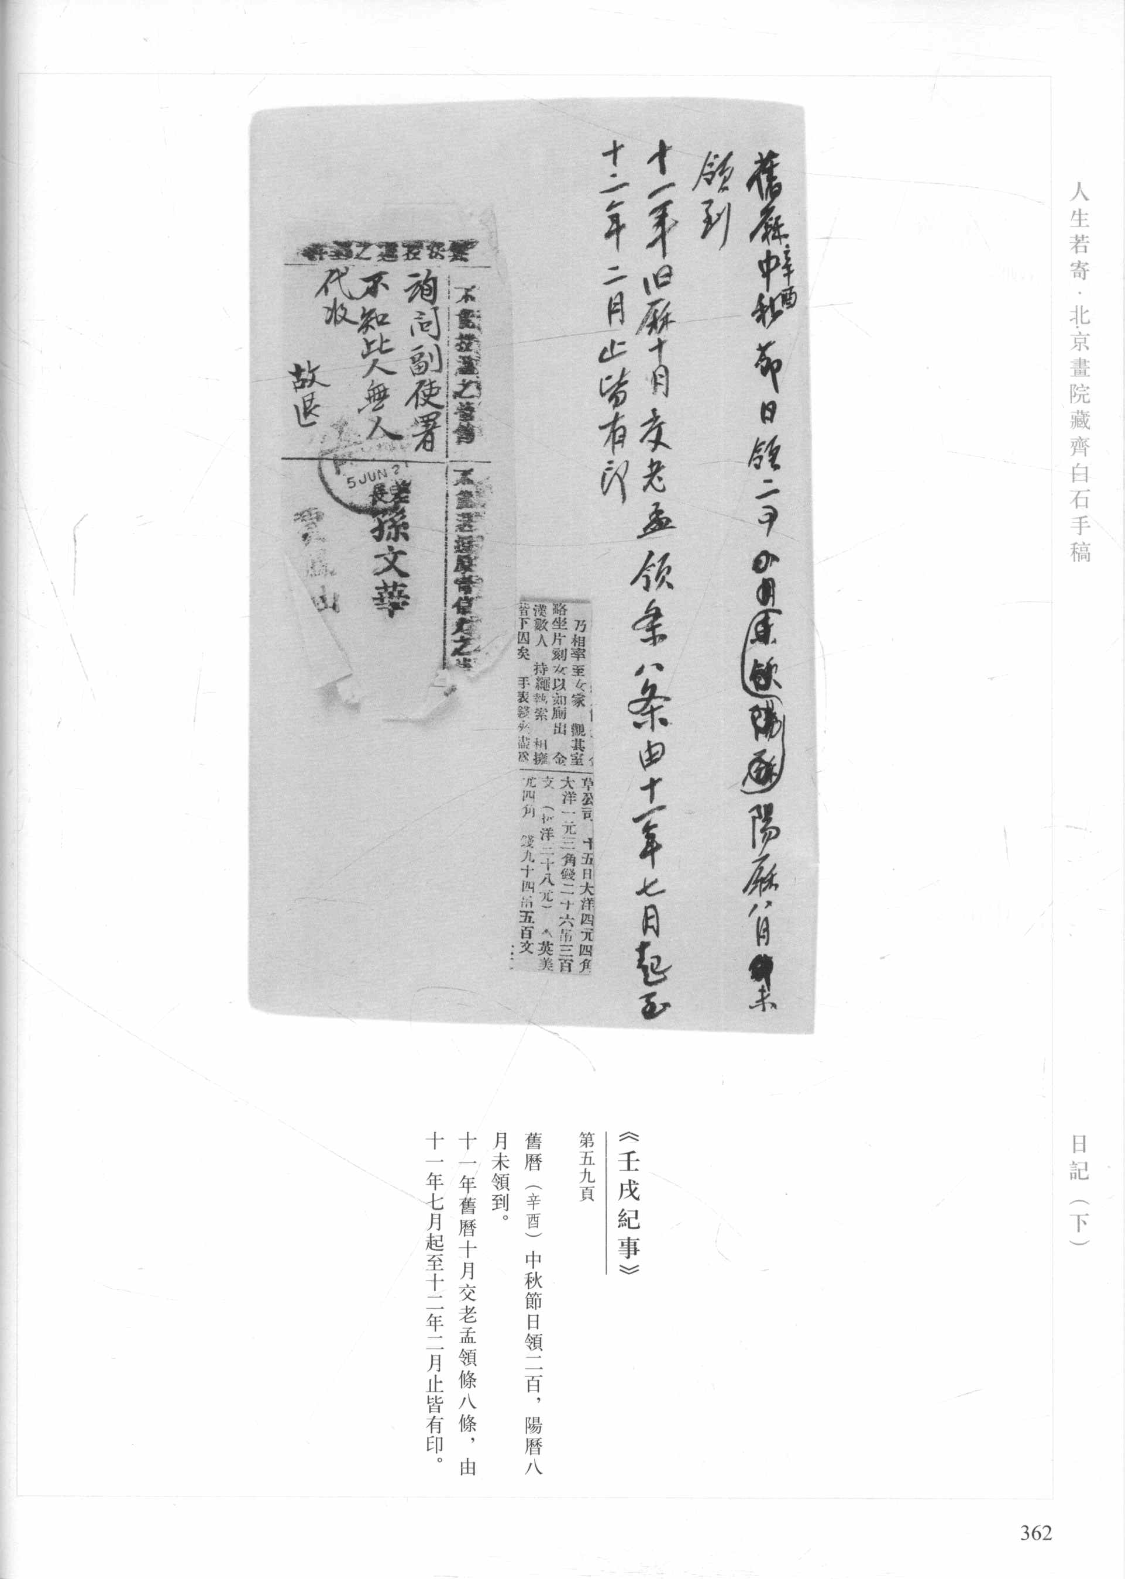 人生若寄·北京畫院藏齊白石手稿
日記（下）
舊厤辛酉中秋節日領二百
陽厤八月未
領到
十一年旧厤十月交老孟領条八条由十一年七月起至
十二年二月止皆有印
乃相率至女家 觀其室
略坐片刻女以如廁出 金
漢數人 持繩執索 相擁
草公司 十五日大洋四元四角
大洋一元三角錢二十六吊三百
文（折洋二十八元） 英美
元四角 錢九十四吊五百文
詢問副使署
不知此人無人
代收
故退
5 JUN 21
孫文華
《壬戌紀事》
第五九頁
舊曆（辛酉）中秋節日領二百，陽曆八
月未領到。
十一年舊曆十月交老孟領條八條，由
十一年七月起至十二年二月止皆有印。
362